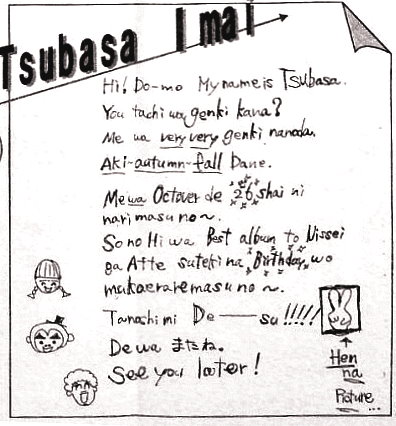 Tsubasa Imai
Hi! Do-mo My name is Tsubasa.
You tachi wa genki kana?
Me wa very very genki nanoda.
Aki-autumn-fall Dane.
Me wa Octover de 26 shai ni
narimasu no~.
So no Hi wa Best album to Nissei
ga Atte suteki na Birthday wo
mukaeraremasu no~.
Tanoshimi De——su!!!!!
De wa またね。
See you later!
Hen
na
Picture...